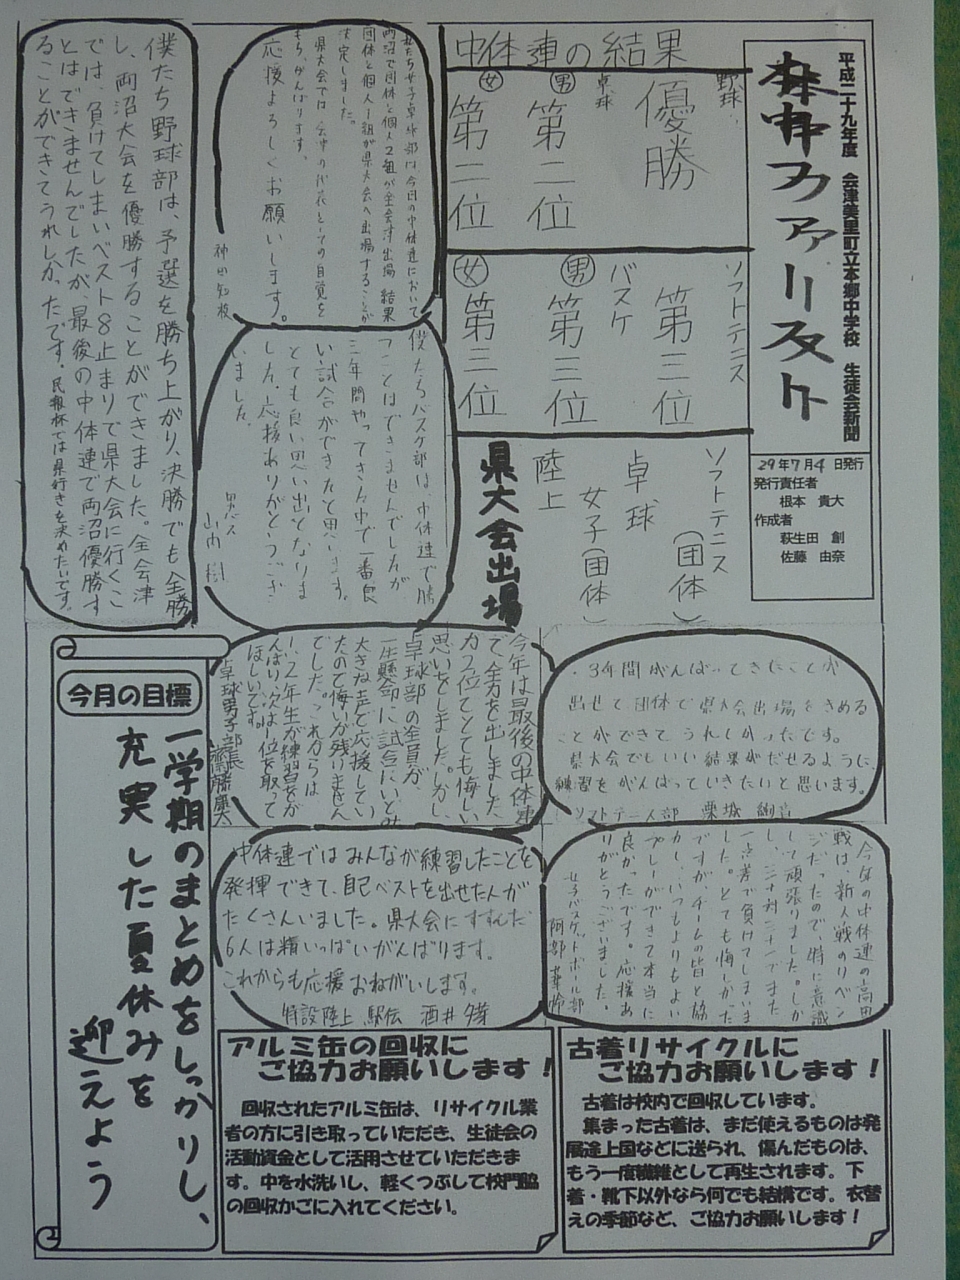 平成二十九年度 会津美里町立本郷中学校 生徒会新聞
本中ファースト
29年7月4日発行
発行責任者
根本 貴大
作成者
萩生田 創
佐藤 由奈
中体連の結果
野球
優勝
卓球
男 第二位
女 第二位
ソフトテニス
第三位
バスケ
男 第三位
女 第三位
県大会出場
ソフトテニス
(団体)
卓球
女子(団体)
陸上
私たち女子卓球部は今回の中体連において
両沼で団体と個人2組が全会津出場 結果
団体と個人1組が県大会へ出場することが
決定しました。
県大会では会中の代表としての自覚を
もち、がんばります。
応援よろしくお願いします。
僕たちバスケ部は、中体連で勝
つことはできませんでしたが
三年間やってきた中で一番良
い試合ができたと思います。
とても良い思い出となりま
した。応援ありがとうござ
いました。
男バス
山内 樹
僕たち野球部は、予選を勝ち上がり、決勝でも全勝
し、両沼大会を優勝することができました。全会津
では、負けてしまいベスト8止まりで県大会に行くこ
とはできませんでしたが、最後の中体連で両沼優勝す
ることができてうれしかったです。民報杯では県行きを決めたいです。
3年間がんばってきたことが
出せて団体で県大会出場をきめる
ことができてうれしかったです。
県大会でもいい結果がだせるように、
練習をがんばっていきたいと思います。
ソフトテニス部 栗城 絢音
今年は最後の中体連
で全力を出しました
が2位でとても悔しい
思いをしました。しかし
卓球部の全員が、
一生懸命に試合にいどみ
大きな声で応援してい
たので悔いが残りません
でした。これからは
1、2年生が練習をが
んばり、次は一位を取って
ほしいです。
卓球男子部長
齋藤 康太
今年の中体連の高田
戦は、新人戦のリベン
ジだったので、特に意識
して頑張りました。しか
し、三十対三十一でまた
一点差で負けてしまいま
した。とても悔しかった
ですが、チームの皆と協
力し、いつもよりもよい
プレーができて本当に
良かったです。応援あ
りがとうございました。
女子バスケットボール部
阿部
中体連ではみんなが練習したことを
発揮できて、自己ベストを出せた人が
たくさんいました。県大会にすすんだ
6人は精いっぱいがんばります。
これからも応援おねがいします。
特設陸上 駅伝 酒井
今月の目標
一学期のまとめをしっかりし、
充実した夏休みを
迎えよう
アルミ缶の回収に
ご協力お願いします!
回収されたアルミ缶は、リサイクル業
者の方に引き取っていただき、生徒会の
活動資金として活用させていただきま
す。中を水洗いし、軽くつぶして校門脇
の回収かごに入れてください。
古着リサイクルに
ご協力お願いします!
古着は校内で回収しています。
集まった古着は、まだ使えるものは発
展途上国などに送られ、傷んだものは、
もう一度繊維として再生されます。下
着・靴下以外なら何でも結構です。衣替
えの季節など、ご協力お願いします!